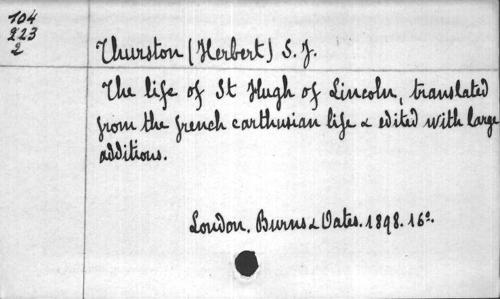 104
223
2
Thurston (Herbert) S. J.
The life of St Hugh of Lincoln, translated
from the french carthusian life & edited with large
additions.
London, Burns & Oates. 1898. 16º.